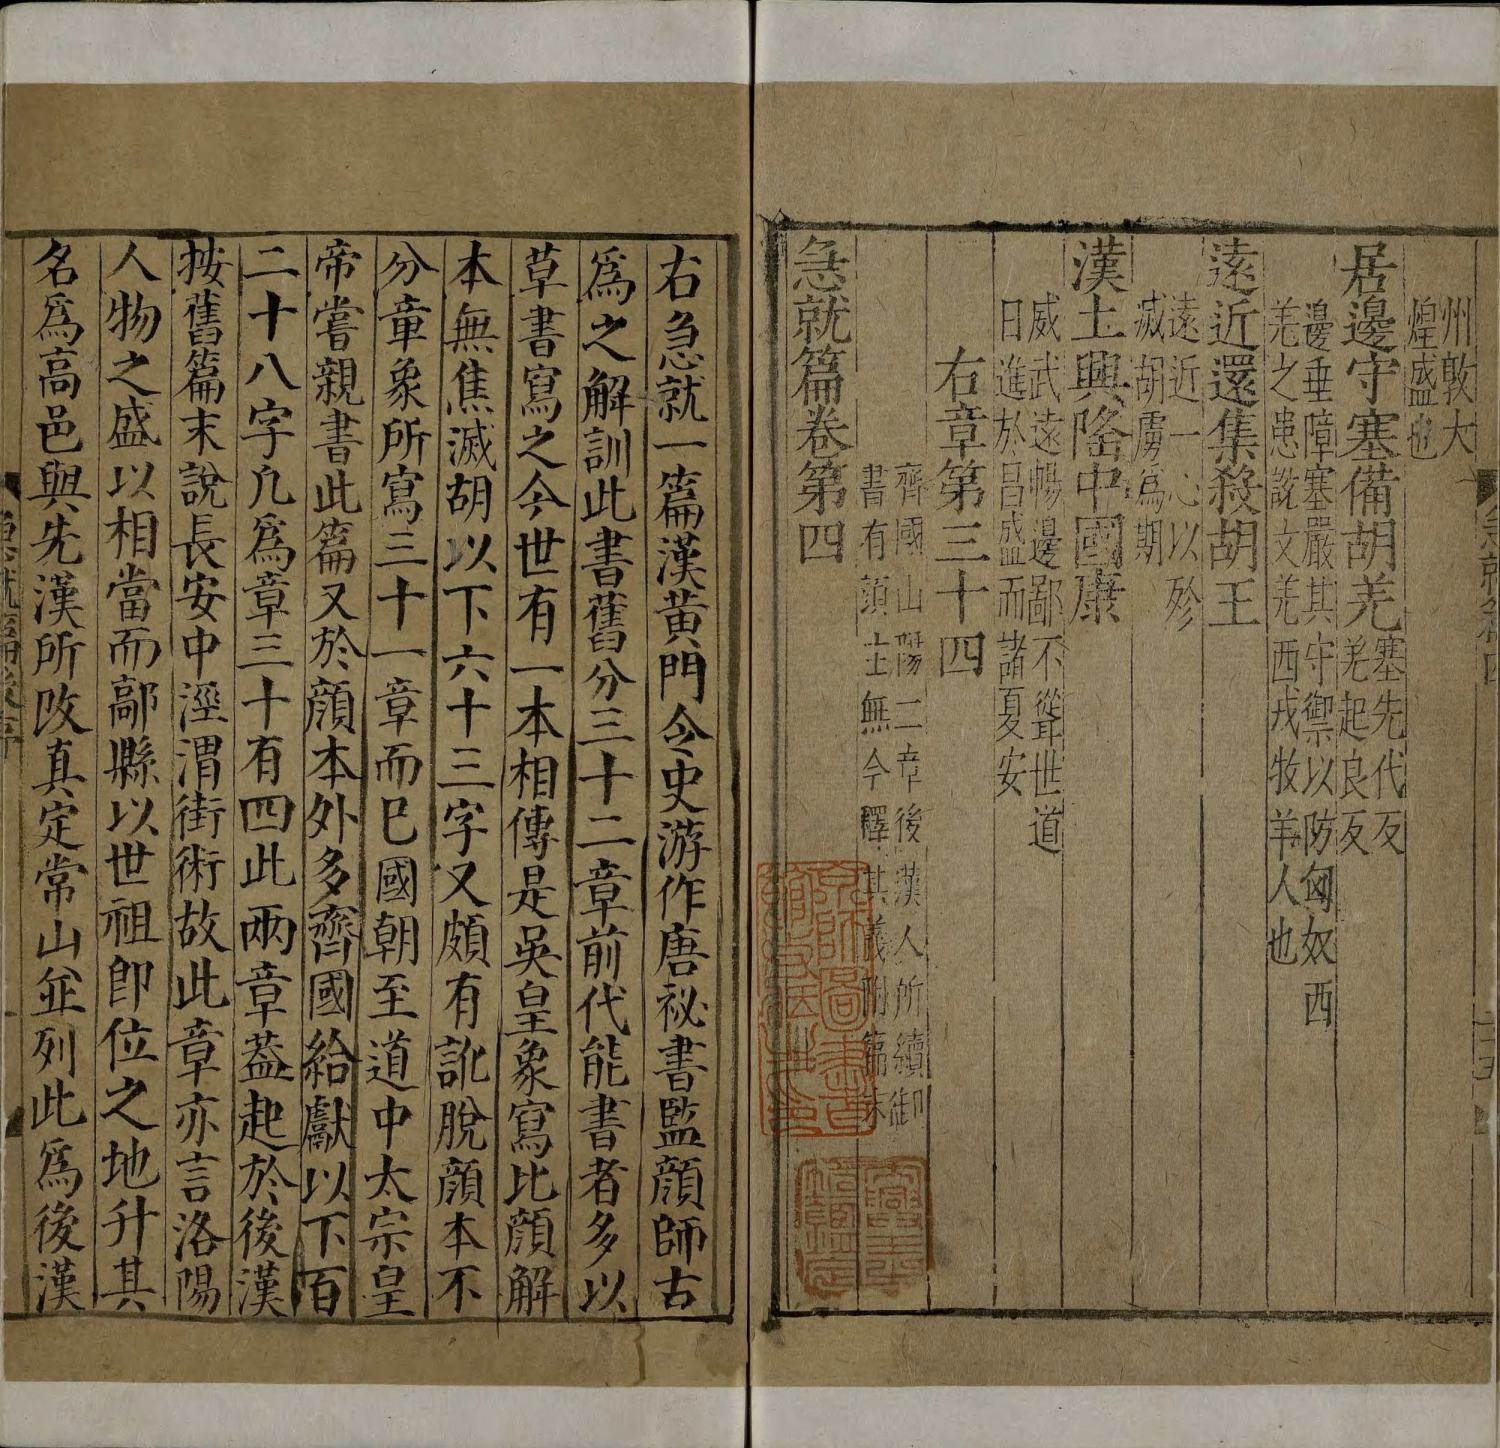 州敦大
煌盛也
居邊守塞備胡羌
塞先代反
羌起良反
邊垂障塞嚴其守禦以防匈奴西
羌之患説文羌西戎牧羊人也
遠近還集殺胡王
遠近一心以殄
滅胡虜爲期
漢土興隆中國康
威武遠暢邊鄙不聳世道
日進於昌盛而諸夏安
右章第三十四
齊國山陽二章後漢人所續御
書有顔注無今釋其義附篇末
急就篇卷第四
右急就一篇漢黄門令史游作唐祕書監顔師古
爲之解訓此書舊分三十二章前代能書者多以
草書寫之今世有一本相傳是吳皇象寫比顔解
本無焦滅胡以下六十三字又頗有訛脫顔本不
分章象所寫三十一章而已國朝至道中太宗皇
帝嘗親書此篇又於顔本外多齊國給獻以下百
二十八字凡爲章三十有四此兩章蓋起於後漢
按舊篇末說長安中涇渭街術故此章亦言洛陽
人物之盛以相當而鄗縣以世祖即位之地升其
名爲高邑與先漢所改真定常山並列此爲後漢